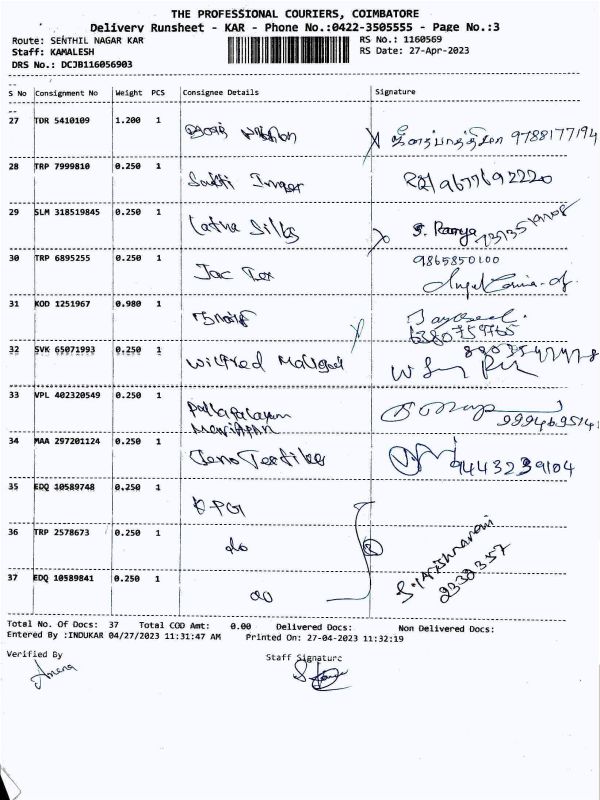 THE PROFESSIONAL COURIERS, COIMBATORE
Delivery Runsheet - KAR - Phone No.:0422-3505555 - Page No.:3
Route: SENTHIL NAGAR KAR RS No.: 1160569
Staff: KAMALESH RS Date: 27-Apr-2023
DRS No.: DCJB116056903
S No Consignment No Weight PCS Consignee Details Signature
27 TDR 5410109 1.200 1
9788177194
28 TRP 7999810 0.250 1
Sakti Imager 9677692220
29 SLM 318519845 0.250 1
Latha Silks S. Ramya
30 TRP 6895255 0.250 1 9865850100
Jac Tex
31 KOD 1251967 0.980 1
32 SVK 65071993 0.250 1
Wilfred
33 VPL 402320549 0.250 1
Pallapalayam
Mariappan
34 MAA 297201124 0.250 1
Jeno Textiles 9443239104
35 EDQ 10589748 0.250 1
KPG
36 TRP 2578673 0.250 1
do
37 EDQ 10589841 0.250 1
do
Total No. Of Docs: 37 Total COD Amt: 0.00 Delivered Docs: Non Delivered Docs:
Entered By :INDUKAR 04/27/2023 11:31:47 AM Printed On: 27-04-2023 11:32:19
Verified By Staff Signature